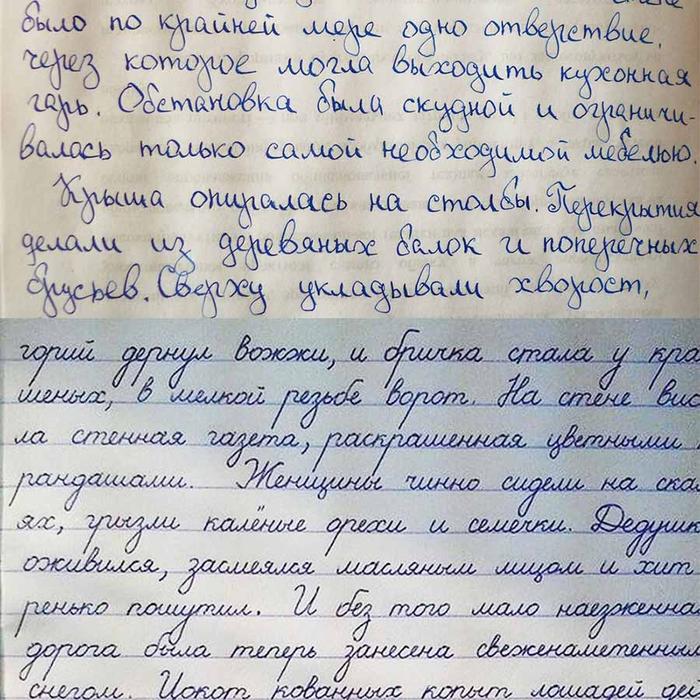 было по крайней мере одно отверствие,
через которое могла выходить кухонная
гарь. Обстановка была скудной и ограничи-
валась только самой необходимой мебелью.
Крыша опиралась на столбы. Перекрытия
делали из деревяных балок и поперечных
брусьев. Сверху укладывали хворост,
горий дернул вожжи, и бричка стала у кра
шеных, в мелкой резьбе ворот. На стене вис
ла стенная газета, раскрашенная цветными
рандашами. Женщины чинно сидели на ска
ях, грызли калёные орехи и семечки. Дедушк
оживился, засмеялся масляным лицом и хит
ренько пошутил. И без того мало наезженна
дорога была теперь занесена свеженаметенным
снегом. Цокот кованных копыт лошадей